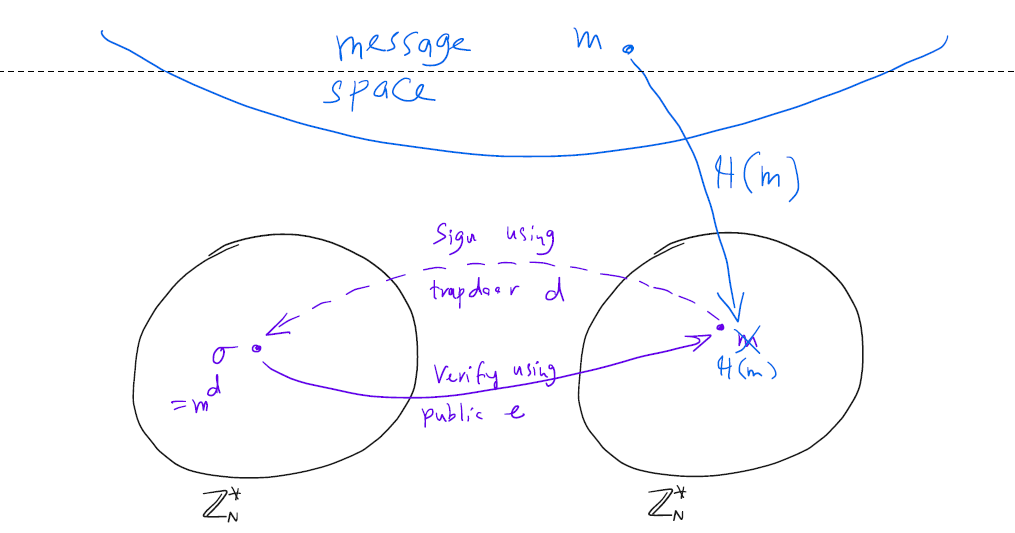 message
space
m
H(m)
Sign using
trapdoor d
σ
= m^d
Verify using
public e
m
H(m)
ℤ*_N
ℤ*_N